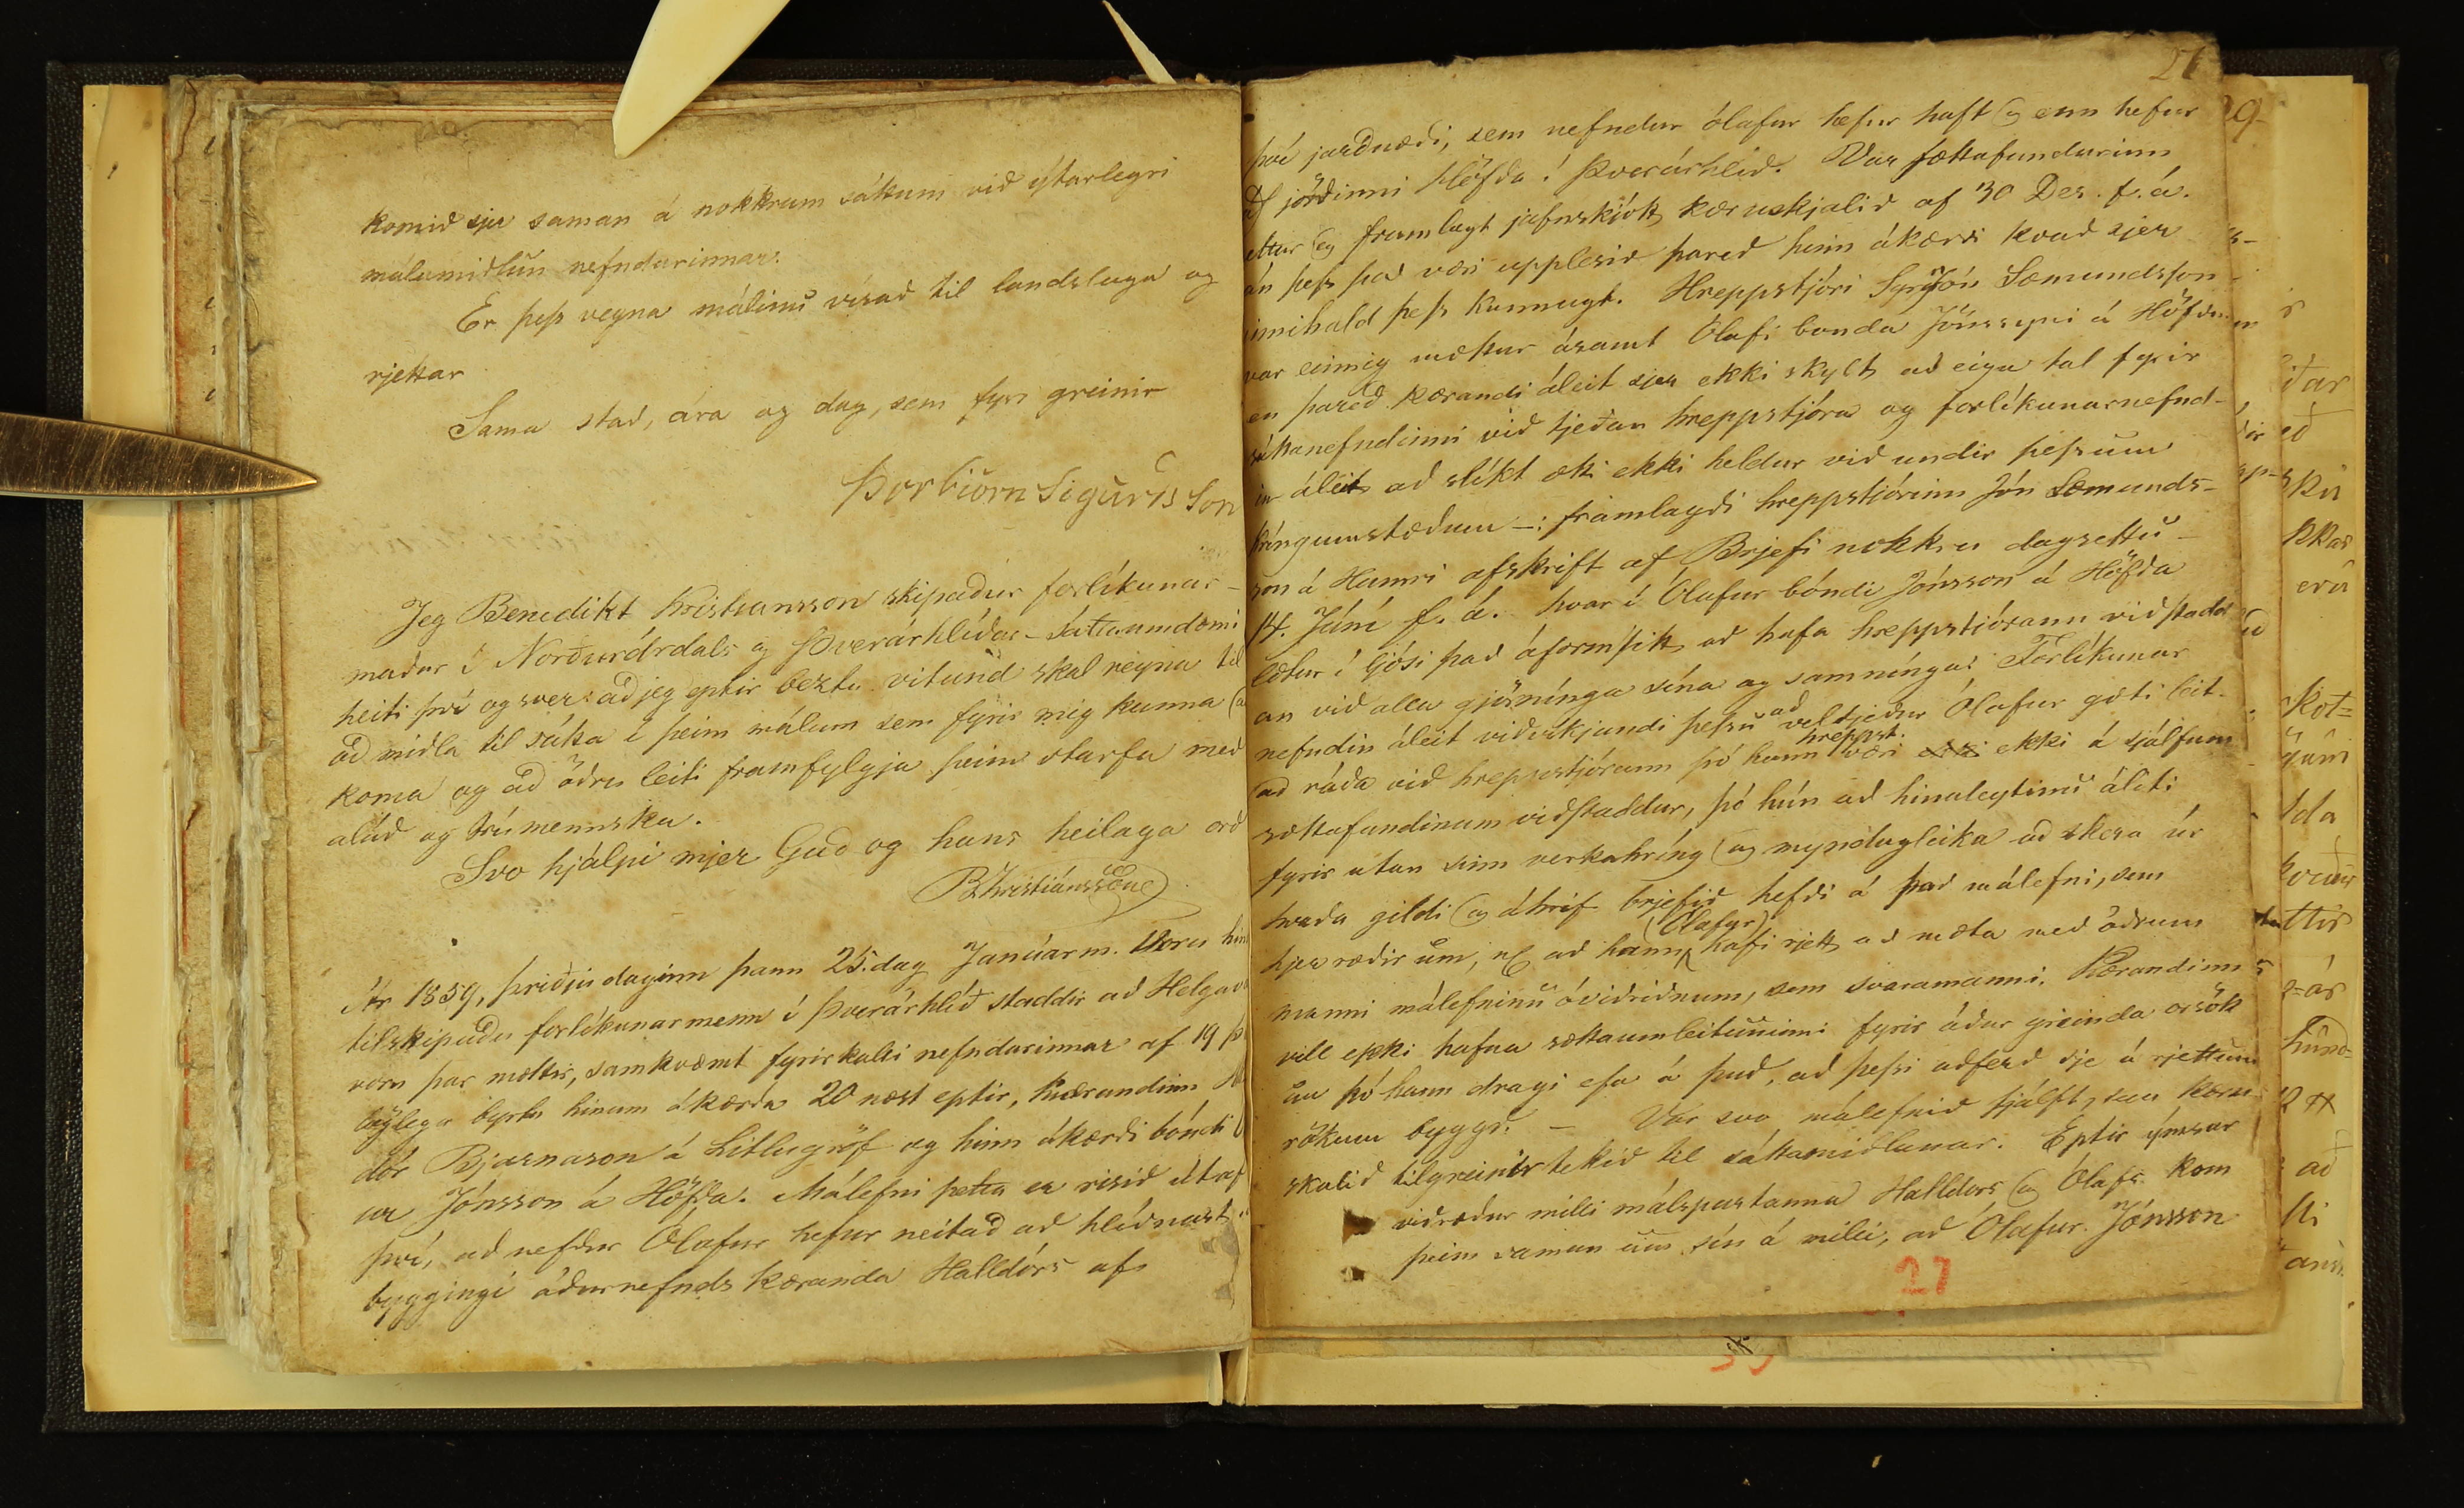 komið sjer saman á nokkrum sáttum við ýtarlegri
málamiðlun nefndarinnar.
Er þess vegna málinu vísað til landslaga og
rjettar
Sama stað, ára og dag, sem fyrr greinir
Þorbiörn Sigurdsson
Jeg Benedikt Kristiansson skipaður forlíkunar-
maður í Norðurárdals og Þverárhlíðar-sáttaumdæmi
heiti því og sver: að jeg eptir beztu vitund skal reyna til
að miðla til sátta í þeim málum sem fyrir mig kunna að
koma og að öðru leiti framfylgja þeim starfa með
alúð og trúmennsku.
Svo hjálpi mjer Guð og hans heilaga orð
B. Kristiánsson
Ár 1859, þriðjudaginn þann 25. dag Janúarm. Voru hin
tilskipuðu forlíkunarmenn í Þverárhlíð staddir að Helgav
voru þar mættir, samkvæmt fyrirkalli nefndarinnar af 19 þ
býlega byrtu hinum ákærða 20 næst eptir, kærandinn
dór Bjarnason á Litlugröf og hinn ákærði bóndi
ur Jónsson á Höfða. Málefni þetta er risið útaf
því, að nefdur Ólafur hefur neitað að hlíðnast
byggingi áðurnefnds kæranda Halldórs af
27
því jarðnæði, sem nefndur Ólafur hefur haft og enn hefur
af jörðinni Höfða í Þverárhlíð. Var sættafundurinn
ettur og framlagt jafnskjótt kæruskjalið af 30 Des. f. á.
án þess það væri upplesið þareð hinn ákærði kvað sjer
innihald þess kunnugt. Hreppstjóri Sgr Jón Sæmundsson
var einnig mættur ásamt Ólafi bónda Jónssyni á Höfða
en þareð kærandi áleit sjer ekki skylt að eiga tal fyrir
sáttanefndinni við tjeðan hreppstjóra og forlíkunarnefnd-
in áleit að slíkt ætti ekki heldur við undir þessum
kríngumstæðum -: framlagði hreppstjórinn Jón Sæmunds-
son á Hamri afskrift af Brjefi nokkru dagsettu
14. Júní f. á. hvar í Ólafur bóndi Jónsson á Höfða
lætur í ljósi það áform sitt að hafa hreppstjórann viðstadd
an við alla gjörnínga sína og samnínga: Forlíkunar
nefndin áleit viðvíkjandi þessu að vel tjeður Ólafur gæti leit-
að ráða við hreppstjórann þó hann hreppst. væri ekki á sjálfum
sættafundinum viðstaddur, þó hún að hinuleytinu áliti
fyrir utan sinn verkahríng og myndugleika að skera úr
hvaða gildi og áhrif brjefið hefði á það málefni, sem
hjer ræðir um, að hann Ólafur hafi rjett að mæta með öðrum
manni málefninu óviðriðnum, sem svaramanni. Kærandinn
vill ekki hafna sættaumleituninni fyrir áður greinda orsök
þó hann dragi efa á það, að þessi aðferð sje á rjettum
rökum byggð. - Var svo málefnið sjálft, sem kæru
skalið tilgreinir tekið til sáttamiðlunar. Eptir ýmsar
viðræður milli málspartanna Halldórs og Ólafs kom
þeim saman um sín á milli, að Ólafur Jónsson
27